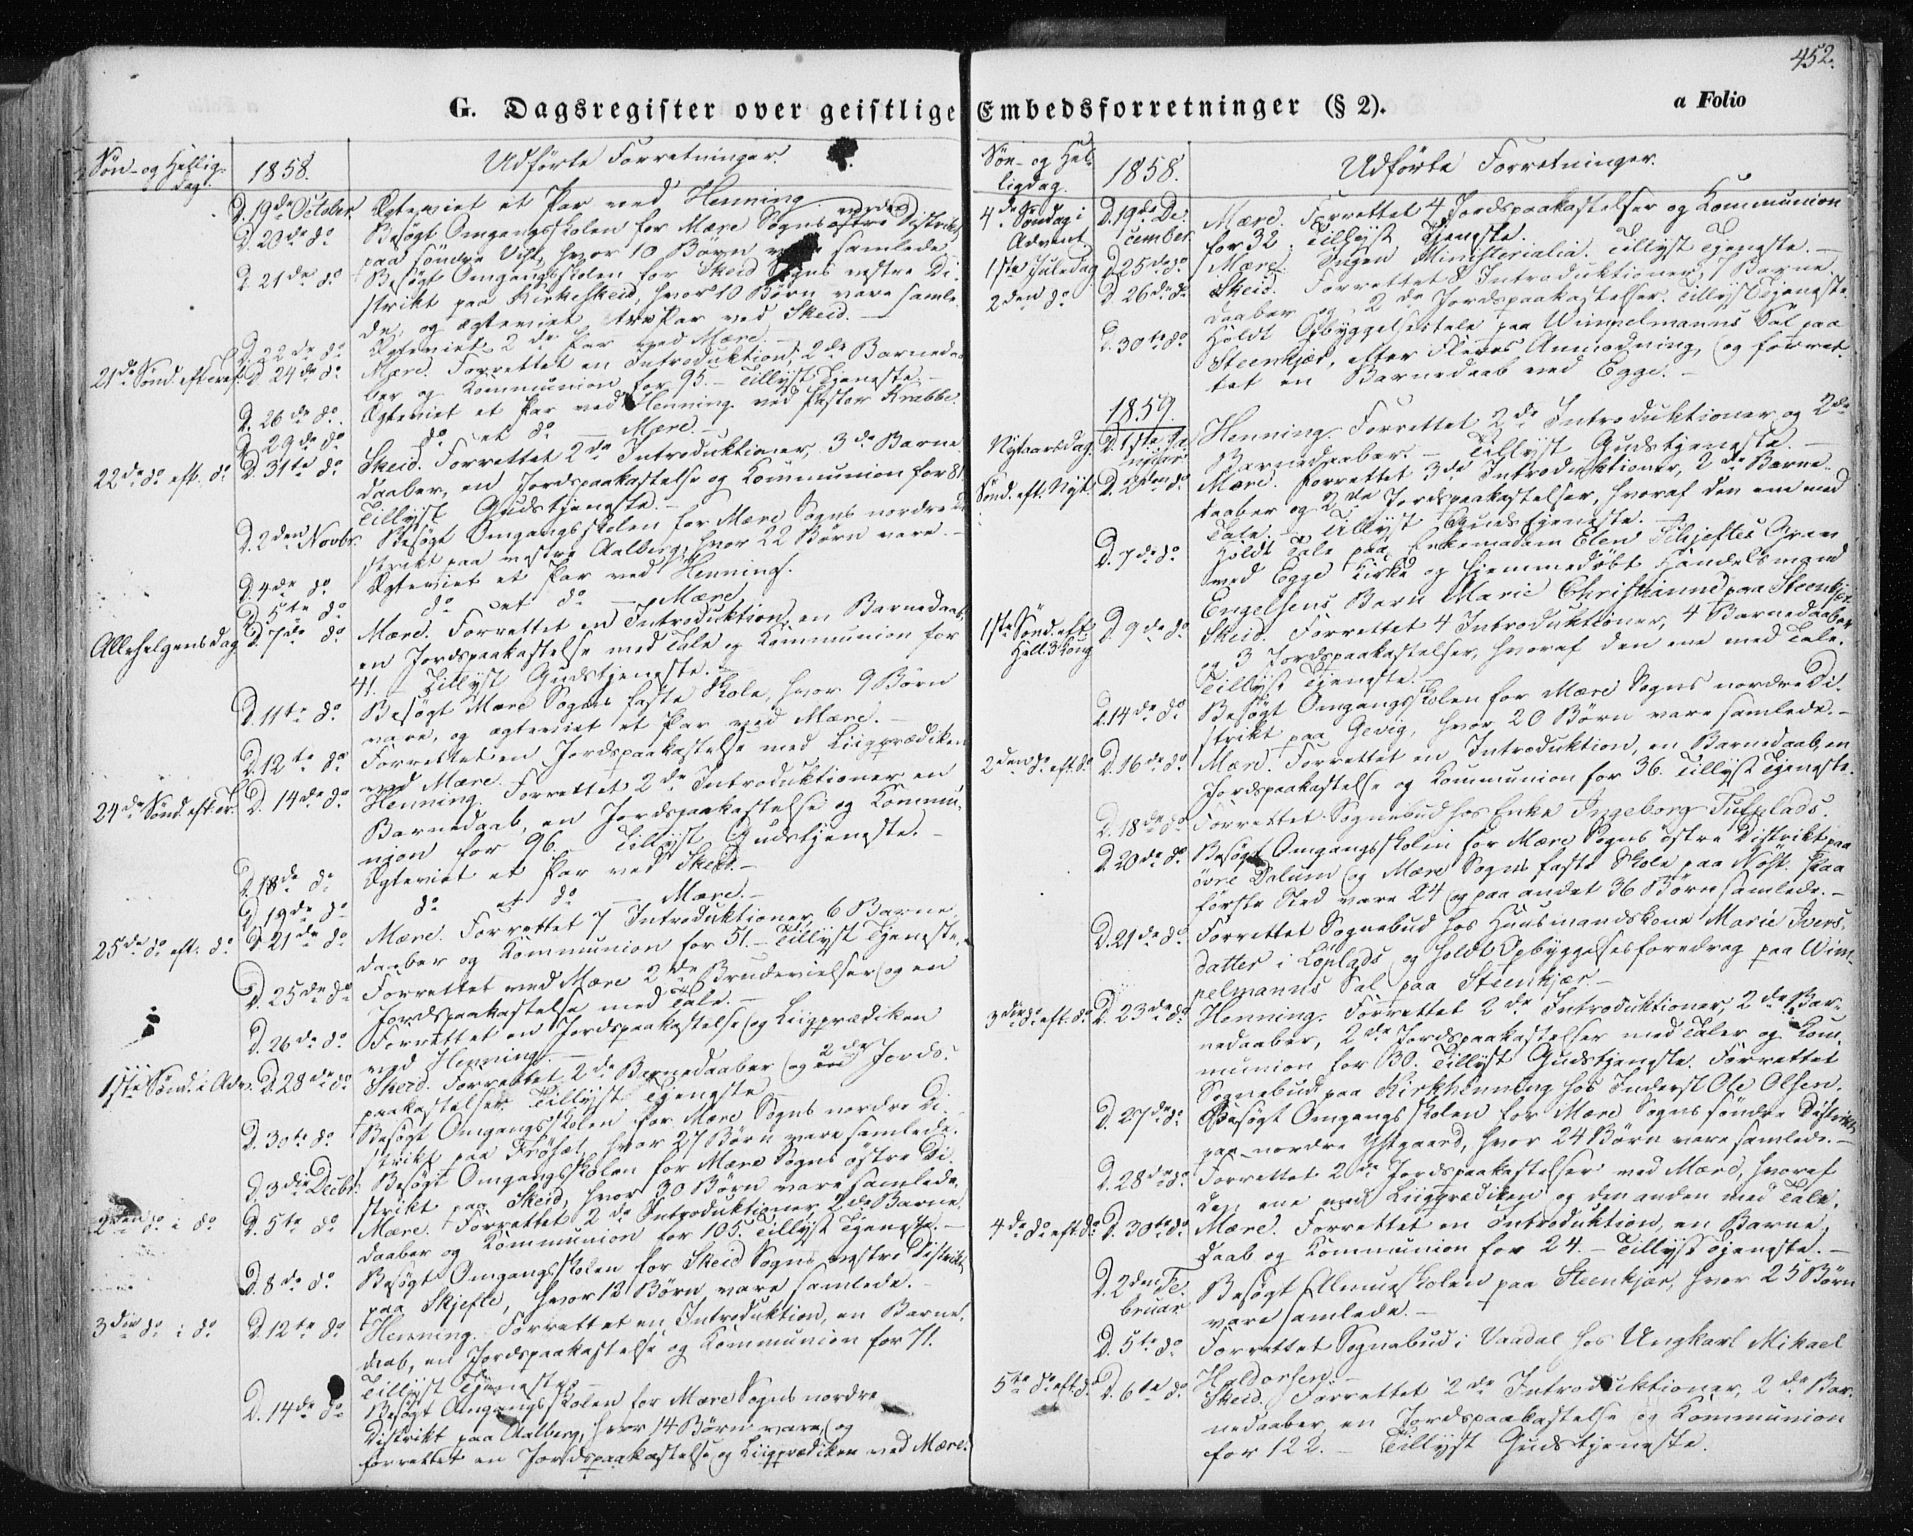 452.
G. Dagsregister over geistlige Embedsforretninger (§ 2). a Folio
Søn- og Hellig-
dag. 1858. Udførte Forretninger.
D. 19de October Ægteviet et Par ved Henning.
D. 20de do Besøgt Omgangsskolen for Mære Sogns østre Distrikt
paa søndre Vist, hvor 10 Børn vare samlede.
D. 21de do Besøgt Omgangsskolen for Skeid Sogns vestre Di-
strikt paa Kirkeskeid, hvor 10 Børn vare samle-
de, og ægteviet tre Par ved Skeid.
D. 22de do Ægteviet 2de Par ved Mære.
21de Sønd. efter D. 24de do Mære. Forrettet en Introduktion, 2de Barneda-
ber og Kommunion for 95. - Tillyst Tjeneste. -
D. 26de do. Ægteviet et Par ved Henning ved Pastor Krabbe.
D. 29de do do et do - Mære. -
22de do eft. do D. 31te do Skeid. Forrettet 2de Introduktioner, 3de Barne-
daaber, en Jordspaakastelse og Kommunion for 81.
Tillyst Gudstjeneste. -
D. 2den Novbr. Besøgt Omgangsskolen for Mære Sogns nordre Di-
strikt paa vestre Aalberg, hvor 22 Børn vare. -
D. 4de do Ægteviet et Par ved Henning.
D. 5te do do et do - Mære.
Allehelgensdag D. 7de do Mære. Forrettet en Introduktion, en Barnedaab,
en Jordspaakastelse med Tale og Kommunion for
41. - Tillyst Gudstjeneste. -
D. 11te do Besøgt Mære Sogns faste Skole, hvor 9 Børn
vare, og ægteviet et Par ved Mære. -
D. 12te do Forrettet en Jordspaakastelse med Liigprædiken
ved Mære.
24de Sønd. efter D. 14de do Henning. Forrettet 2de Introduktioner en
Barnedaab, en Jordspaakastelse og Kommu-
nion for 96. - Tillyst Gudstjeneste. -
D. 18de do Ægteviet et Par ved Skeid. -
D. 19de do do et do - Mære. -
25de do eft. do D. 21de do Mære. Forrettet 7 Introduktioner, 6 Barne-
daaber og Kommunion for 51. - Tillyst Tjeneste. -
D. 25de do Forrettet ved Mære 2de Brudevielser og en
Jordspaakastelse med Tale. -
D. 26de do Forrettet en Jordspaakastelse og Liigprædiken
ved Henning. -
1ste Sønd. i Adv. D. 28de do Skeid. Forrettet 2de Barnedaaber og 2de Jords-
paakastelser. Tillyst Tjeneste. -
D. 30te do Besøgt Omgangsskolen for Mære Sogns nordre Di-
strikt paa Frøset, hvor 27 Børn vare samlede.
D. 3die Decbr. Besøgt Omgangsskolen for Mære Sogns østre Di-
strikt paa Skeid, hvor 30 Børn vare samlede.
2den do i do D. 5te do Mære. Forrettet 2de Introduktioner, 2de Barne-
daaber og Kommunion for 105. Tillyst Tjeneste. -
D. 8de do. Besøgt Omgangsskolen for Skeid Sogns vestre Distrikt
paa Skjefte, hvor 12 Børn vare samlede. -
3die do i do D. 12te do Henning. Forrettet en Introduktion, en Barne-
daab, en Jordspaakastelse og Kommunion for 71.
Tillyst Tjeneste. -
D. 14de do Besøgt Omgangsskolen for Mære Sogns nordre
Distrikt paa Aalberg, hvor 14 Børn vare, og
forrettet en Jordspaakastelse og Liigprædiken ved Mære.
Søn- og Hel-
ligdag. 1858. Udførte Forretninger.
4de Søndag i D. 19de De- Mære. Forrettet 4 Jordspaakastelser og Kommunion
Advent cember for 32. Tillyst Tjeneste.
1ste Juledag D. 25de do Mære. Ingen Ministerialia. Tillyst Tjeneste. -
2den do D. 26de do Skeid. Forrettet 8 Introduktioner, Barne-
daaber og 2de Jordspaakastelser. Tillyst Tjeneste.
D. 30te do Holdt Opbyggelsestale paa Wimpelmanns Sal paa
Steenkjær, efter Fleres Anmodning, og forret-
tet en Barnedaab ved Egge. -
1859.
Nytaarsdag. D. 1ste Ja- Henning. Forrettet 2de Introduktioner og 2de
nuar Barnedaaber. - Tillyst Gudstjeneste. -
Sønd. eft. Nyt. D. 2den do Mære. Forrettet 3de Introduktioner, 2de Barne-
daaber og 2de Jordspaakastelser, hvoraf den ene med
Tale. - Tillyst Gudstjeneste.
D. 7de do Holdt Tale paa Enkemadam Elen Gran
ved Egge Kirke og hjemmedøbt Handelsmand
Engelsens Barn Marie Christianne paa Steenkjær.
1ste Sønd. eft. D. 9de do Skeid. Forrettet 4 Introduktioner, 4 Barnedaaber
Hell. 3 Kong. og 3 Jordspaakastelser, hvoraf den ene med Tale.
Tillyst Tjeneste. -
D. 14de do Besøgt Omgangsskolen for Mære Sogns nordre Di-
strikt paa Gevig, hvor 20 Børn vare samlede. -
2den do eft. do D. 16de do Mære. Forrettet en Introduktion, en Barnedaab, en
Jordspaakastelse og Kommunion for 36. Tillyst Tjeneste.
D. 18de do Forrettet Sognebud hos Enke Ingeborg
D. 20de do Besøgt Omgangsskolen for Mære Sogns østre Distrikt paa
øvre Dalum og Mære Sogns faste Skole paa Nøst. Paa
første Sted vare 24 og paa andet 36 Børn samlede. -
D. 21de do Forrettet Sognebud hos Huusmandskone Marie Ivers-
datter i og holdt Opbyggelsesforedrag paa Wim-
pelmanns Sal paa Steenkjær. -
3die do eft. do D. 23de do Henning. Forrettet 2de Introduktioner, 2de Bar-
nedaaber, 2de Jordspaakastelser med Taler og Kom-
munion for 30. Tillyst Gudstjeneste. Forrettet
Sognebud paa Kirkhenning hos Inderst Ole Olsen.
D. 27de do. Besøgt Omgangsskolen for Mære Sogns søndre Distrikt
paa nordre, hvor 24 Børn vare samlede. -
D. 28de do. Forrettet 2de Jordspaakastelser ved Mære, hvoraf
den ene med Liigprædiken og den anden med Tale.
4de do eft. do D. 30te do Mære. Forrettet en Introduktion, en Barne-
daab og Kommunion for 24. - Tillyst Tjeneste. -
D. 2den Fe- Besøgt Almueskolen paa Steenkjær, hvor 25 Børn
bruar vare samlede. -
D. 5te do Forrettet Sognebud i Vaadal hos Ungkarl Mikael
Haldorsen. -
5te do eft. do D. 6te do Skeid. Forrettet 2de Introduktioner, 2de Bar-
nedaaber, en Jordspaakastelse og Kommunion
for 122. - Tillyst Gudstjeneste.